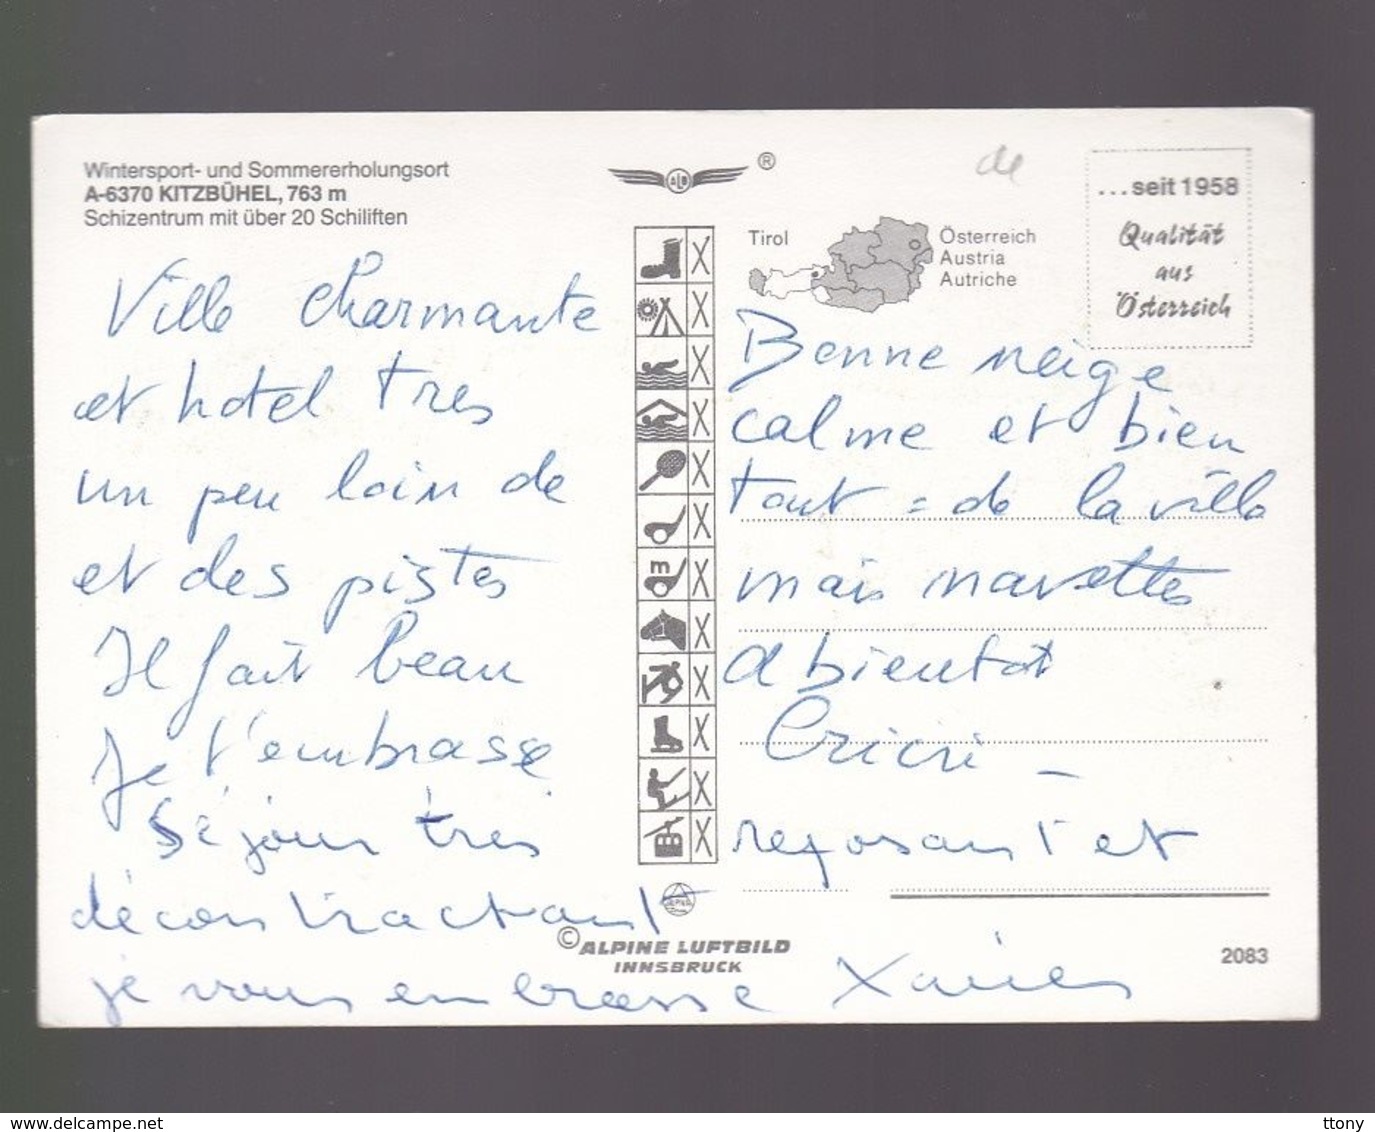 Wintersport- und Sommererholungsort
A-6370 KITZBÜHEL, 763 m
Schizentrum mit über 20 Schiliften
ALB ®
de
...seit 1958
Qualität
aus
Österreich
Tirol
Österreich
Austria
Autriche
m
Ville charmante Bonne neige
et hotel tres calme et bien
un peu loin de tout = de la ville
et des pistes mais navettes
Il fait beau A bientot
Je t'embrasse Cricri -
Séjour très reposant et
décontractant
je vous embrasse Xavier
© ALPINE LUFTBILD
INNSBRUCK
2083
www.delcampe.net
ttony